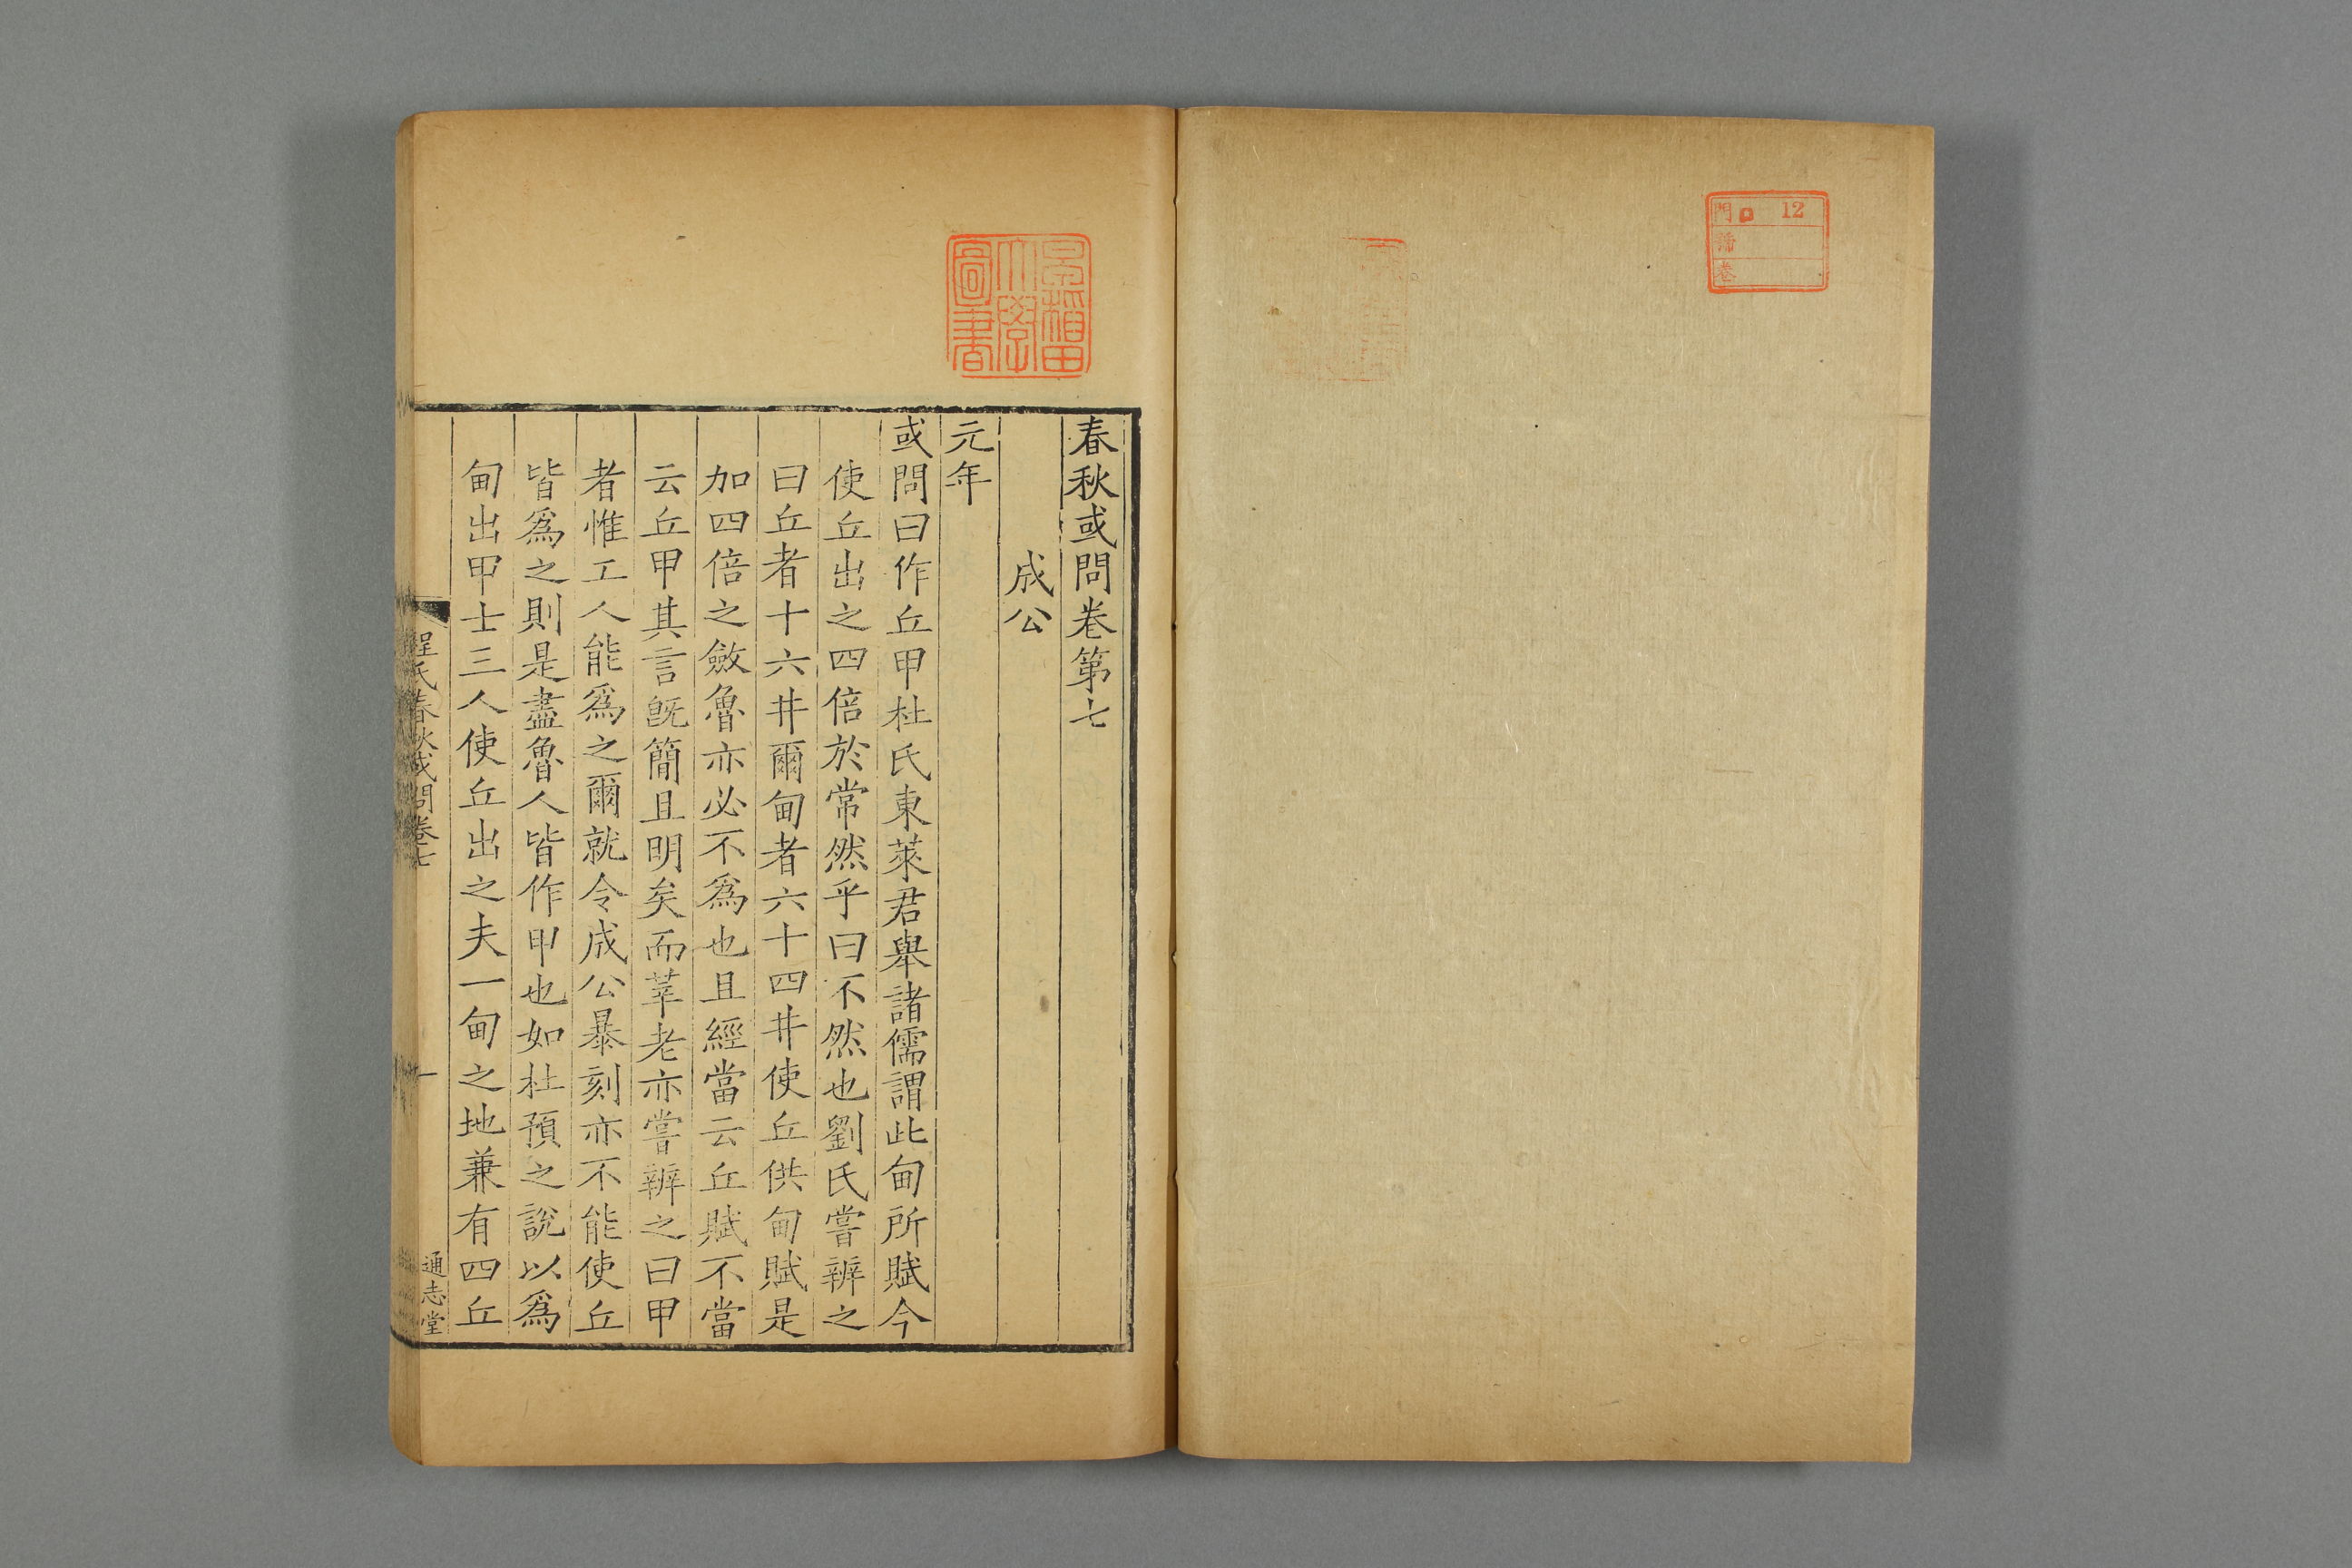 門 ロ 12
號
卷
早稲田大學圖書
春秋或問卷第七
成公
元年
或問曰作丘甲杜氏東萊君舉諸儒謂此甸所賦今
使丘出之四倍於常然乎曰不然也劉氏嘗辨之
曰丘者十六井爾甸者六十四井使丘供甸賦是
加四倍之斂魯亦必不爲也且經當云丘賦不當
云丘甲其言旣簡且明矣而莘老亦嘗辨之曰甲
者惟工人能爲之爾就令成公暴刻亦不能使丘
皆爲之則是盡魯人皆作甲也如杜預之說以爲
甸出甲士三人使丘出之夫一甸之地兼有四丘
程氏春秋或問卷七
一
通志堂